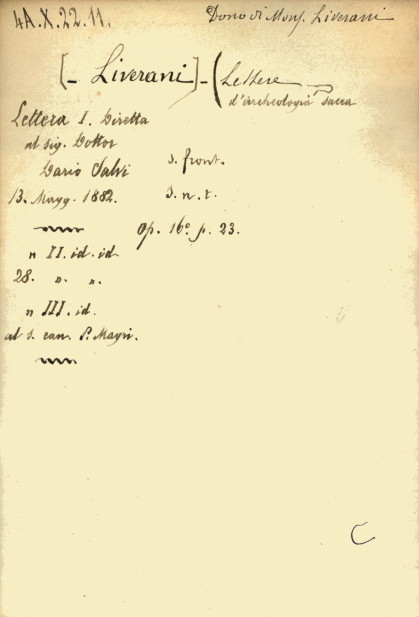 4A.X.22.11.
Dono di Mons. Liverani
[- Liverani] - (Lettere
d'archeologia sacra
Lettera I. Diretta
al sig. Dottor
Dario Salvi
s. front.
13. Magg. 1882.
s. n. t.
Op. 16° p. 23.
" II. id. id.
28. ". ".
" III. id.
al s. can. P. Mayri.
C